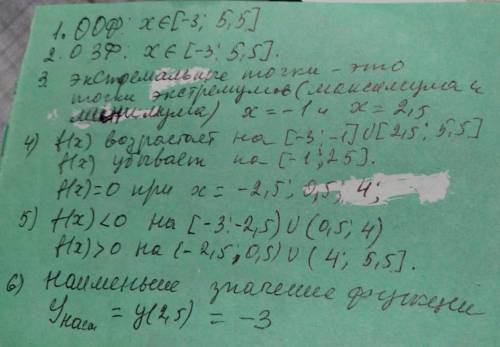 1. ООФ: x∈[-3; 5,5]
2. ОЗФ: x∈[-3; 5,5].
3 экстремальные точки - это
точки экстремумов (максимума и
минимума) x=-1 и x=2,5
4) f(x) возрастает на [-3;-1]∪[2,5; 5,5]
f(x) убывает на [-1; 2,5].
f(x)=0 при x=-2,5; 0,5; 4;
5) f(x)<0 на [-3;-2,5)∪(0,5; 4)
f(x)>0 на (-2,5; 0,5)∪(4; 5,5].
6) Наименьше значение функции
Yнаим = y(2,5) = -3